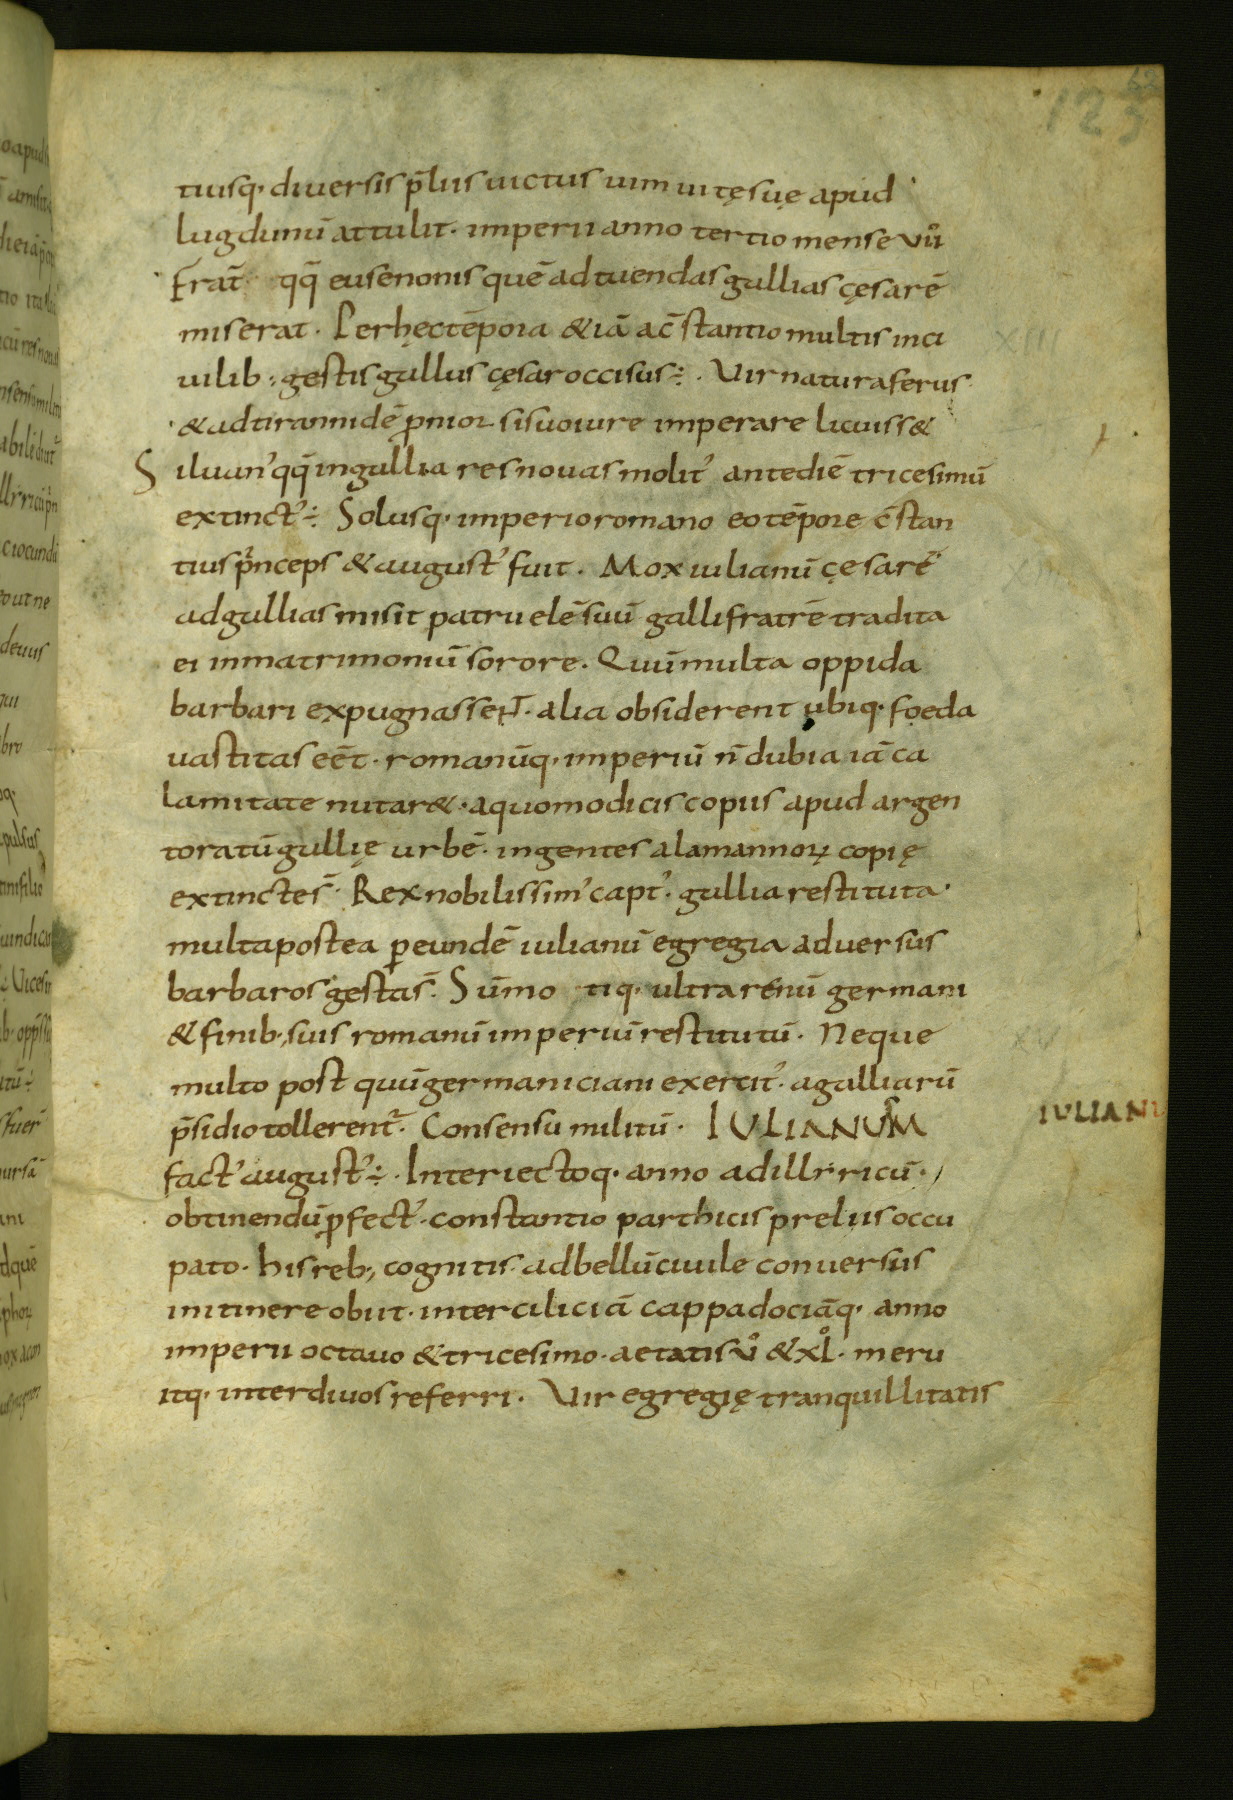 tiusq· diuersis p̄liis uictus uim uitę suę apud
lugdunū attulit· imperii anno tertio mense VII̊
Frat̄ qq̄ eusenonis quē ad tuendas gallias cęsarē
miserat· Per hęc tēpora & iā a c̄stantio multis inci
uilib; gestis gallus cęsar occisus ÷· Vir natura ferus
& ad tirannidē pronior si suo iure imperare licuiss&
Siluan' qq̄ in gallia res nouas molit' ante diē tricesimū
extinct' ÷ Solusq· imperio romano eo tēpore c̄stan
tius princeps & august' fuit· Mox iulianū cęsarē
ad gallias misit patruelē suū galli fratrē tradita
ei in matrimoniū sorore· Quū multa oppida
barbari expugnassent· alia obsiderent ubiq· foeda
uastitas eēt· romanūq· imperiū n̄ dubia iā ca
lamitate nutar&· a quo modicis copiis apud argen
toratū gallię urbē· ingentes alamannoꝝ copię
extinctes̄· Rex nobilissim' capt'· gallia restituta·
multa postea ꝑ eundē iulianū egregia aduersus
barbaros gestas̄· Sūmo tiq· ultra renū germani
& finib; suis romanū imperiū restitutū· Neque
multo post quū germaniciani exercit'· a galliarū
p̄sidio tollerent̄· Consensu militū· IULIANUM
fact' august' ÷· Interiectoq· anno ad illiricū·
obtinendū ꝓfect'· constantio parthicis preliis occu
pato· his reb; cognitis· ad bellū ciuile conuersus
in itinere obiit· inter ciliciā cappadociāq· anno
imperii octauo & tricesimo· aetatis V̊ & XL̊· meru
itq· inter diuos referri· Vir egregię tranquillitatis
IULIANU
XIII
XV